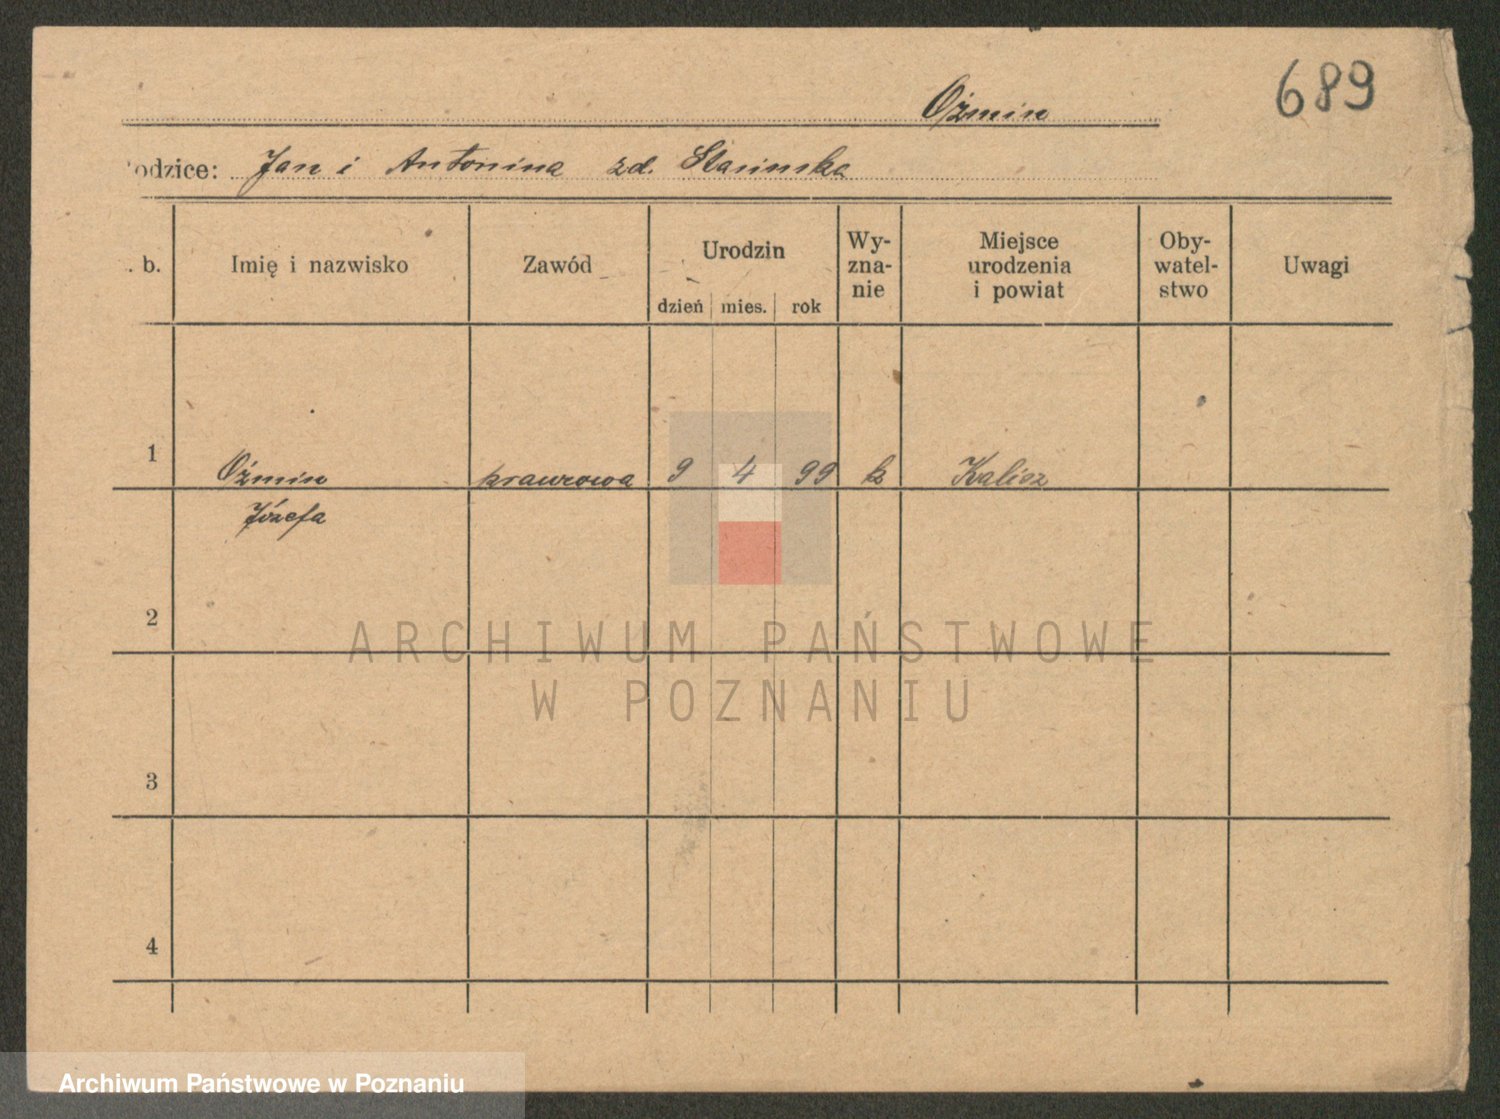 689
Oźmin
odzice: Jan i Antonina zd. Stasinska
. b. Imię i nazwisko Zawód Urodzin dzień mies. rok Wy- zna- nie Miejsce urodzenia i powiat Oby- watel- stwo Uwagi
1 Oźmin krawcowa 9 4 99 k Kalisz
Józefa
2
ARCHIWUM PAŃSTWOWE
W POZNANIU
3
4
Archiwum Państwowe w Poznaniu